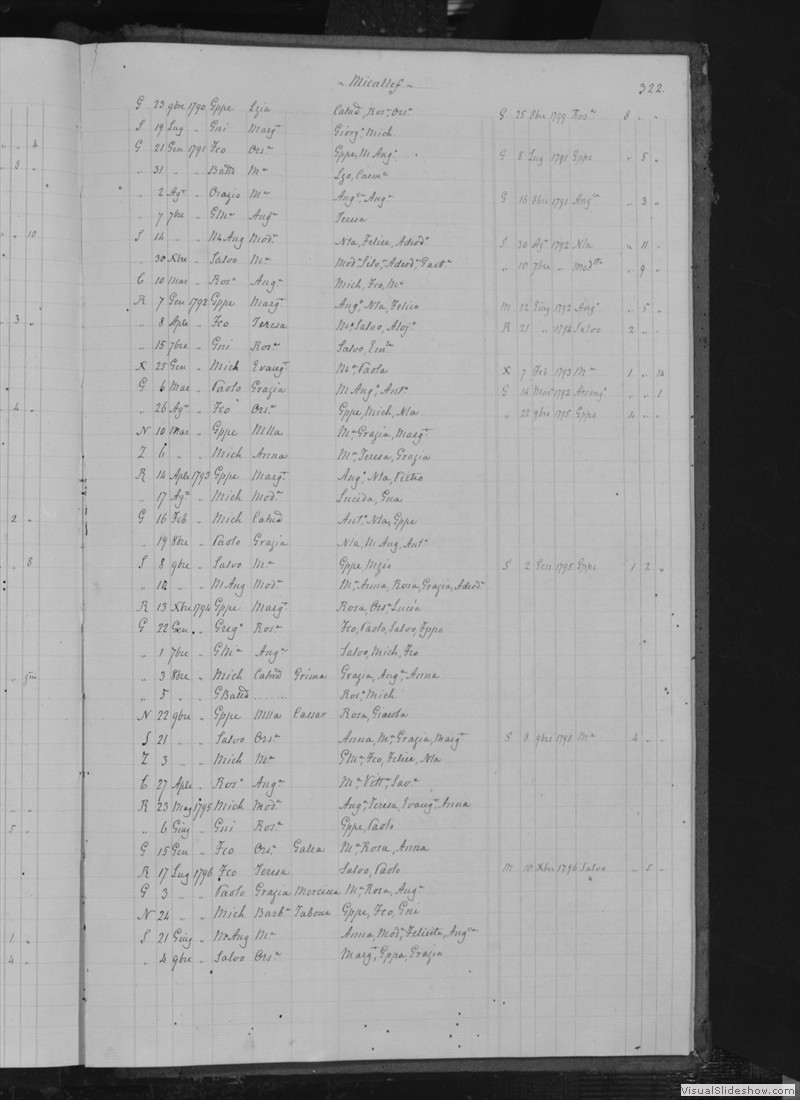 ~ Micallef ~ 322.
G 23 9bre 1790 Gppe Lzia Catnd, Rosa, Orsa G 25 8bre 1799 Rosa 8 " "
S 19 Lug " Gni Margt Giorgo, Mich
G 21 Gen 1791 Fco Orsa Gppe, M Ango G 8 Lug 1791 Gppe " 5 "
" 31 " " Batta Ma Lzo, Carma
" 2 Agto " Orazio Ma Ango, Anga G 16 8bre 1791 Anga " 3 "
" 7 7bre " GMa Anga Teresa
S 14 " " M Ang Moda Nla, Felice, Adeoda S 30 Agto 1792 Nla " 11 "
" 30 Xbre " Salvo Ma " 10 7bre " 9 "
C 10 Mar " Roso Anga Mich, Fco, Ma
R 7 Gen 1792 Gppe Margt Ango, Nla, Felice M 12 Giug 1792 Ango " 5 "
" 8 Aple " Fco Teresa Ma, Salvo, Alojo R 21 " 1794 Salvo 2 " "
" 15 7bre " Gni Rosa Salvo, Emla
X 25 Gen " Mich Evangt Ma, Paola X 7 Feb 1793 Ma 1 " 14
G 6 Mar " Paolo Grazia M Ango, Anto G 14 1792 Arcango " " 1
" 26 Agto " Fco Orsa Gppe, Mich, Nla " 22 9bre 1795 Gppe 4 " "
N 10 Mar " Gppe Mlla Ma, Grazia, Margt
Z 6 " " Mich Anna Ma, Teresa, Grazia
R 14 Aple 1793 Gppe Margt Ango, Nla, Pietro
" 17 Agto " Mich Moda Lucida, Gna
G 16 Feb " Mich Catnd Anto, Nla, Gppe
" 19 8bre " Paolo Grazia Nla, M Ang, Anto
S 8 9bre " Salvo Ma Gppe, Mzia S 2 Gen 1795 Gppe 1 2 "
" 12 " " M Ang Moda Ma, Anna, Rosa, Grazia, Adeoda
R 13 Xbre 1794 Gppe Margt Rosa, Orsa, Lucia
G 22 Gen " Grego Rosa Fco, Paolo, Salvo, Gppa
" 1 7bre " GMa Anga Salvo, Mich, Fco
" 3 8bre " Mich Catnd Grima Grazia, Anga, Anna
" 5 " " GBatta ........ Roso, Mich
N 22 9bre " Gppe Mlla Cassar Rosa, Giacota
S 21 " " Salvo Orsa Anna, Ma, Grazia, Margt S 8 9bre 1798 Ma 4 " "
Z 3 " " Mich Ma GMa, Fco, Felice, Nla
C 27 Aple " Roso Anga Ma, Vitta, Sava
R 23 Mag 1795 Mich Moda Anga, Teresa, Evanga, Anna
" 6 Giug " Gni Rosa Gppe, Paolo
G 15 Gen " Fco Orsa Galea Ma, Rosa, Anna
R 17 Lug 1796 Fco Teresa Salvo, Paolo M 10 Xbre 1796 Salvo " 5 "
G 3 " " Paolo Grazia Mercieca Ma, Rosa, Anga
N 24 " " Mich Barba Tabone Gppe, Fco, Gni
S 21 Giug " M Ang Ma Anna, Moda, Felicita, Angca
" 4 9bre " Salvo Orsa Margt, Gppa, Grazia
VisualSlideshow.com